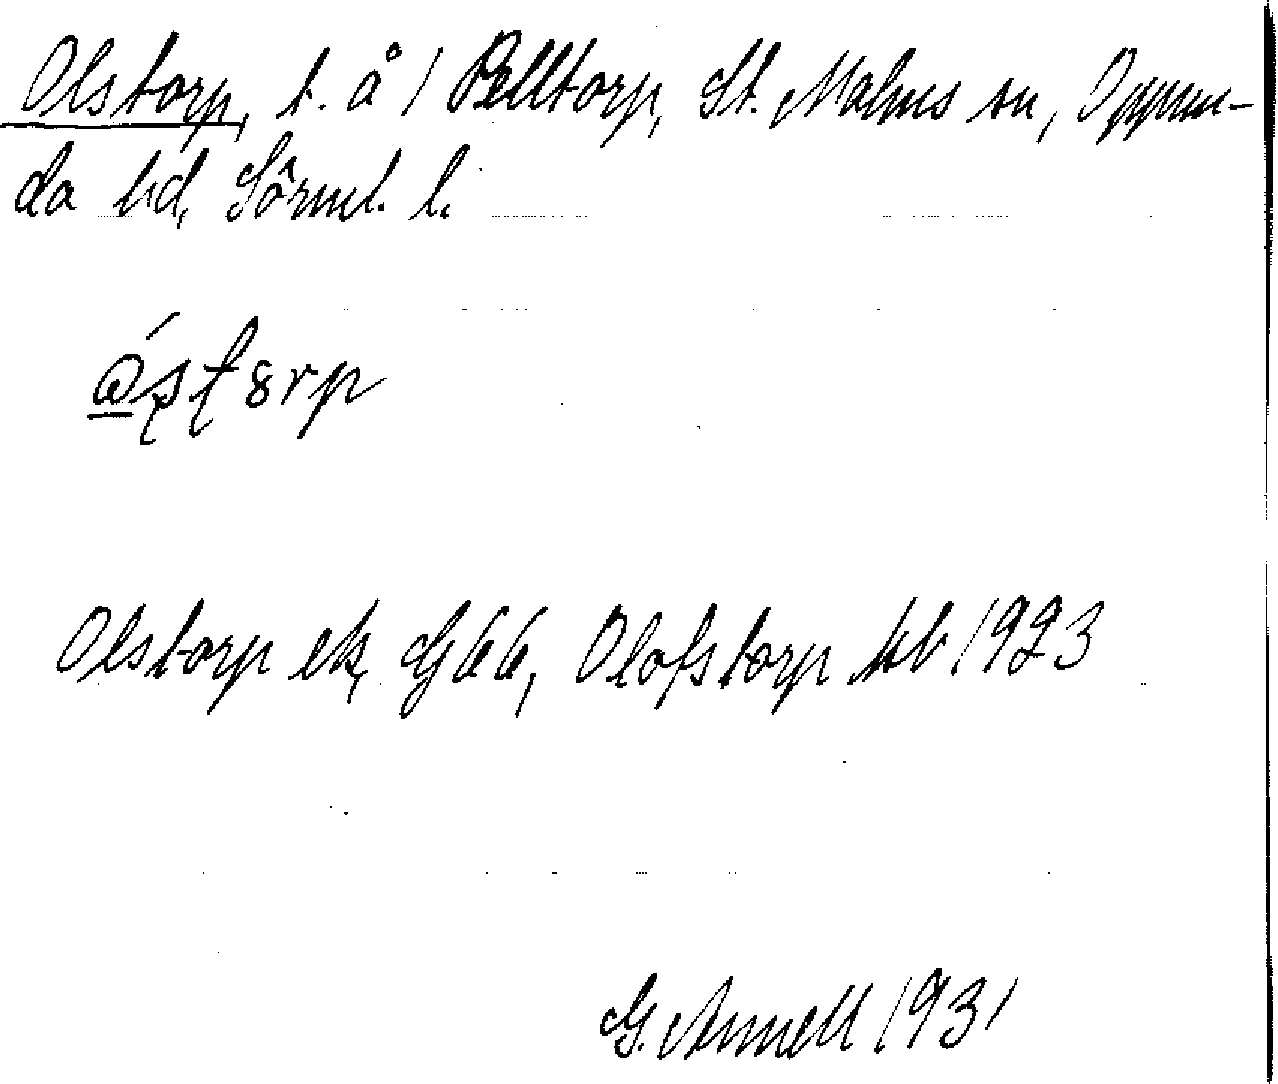 Olstorp, t. å 1 Pelltorp, St. Malms sn, Oppun-
da hd, Sörml. l.
Olstorp ek, G 66, Olofstorp kb 1923
G. Annell 1931